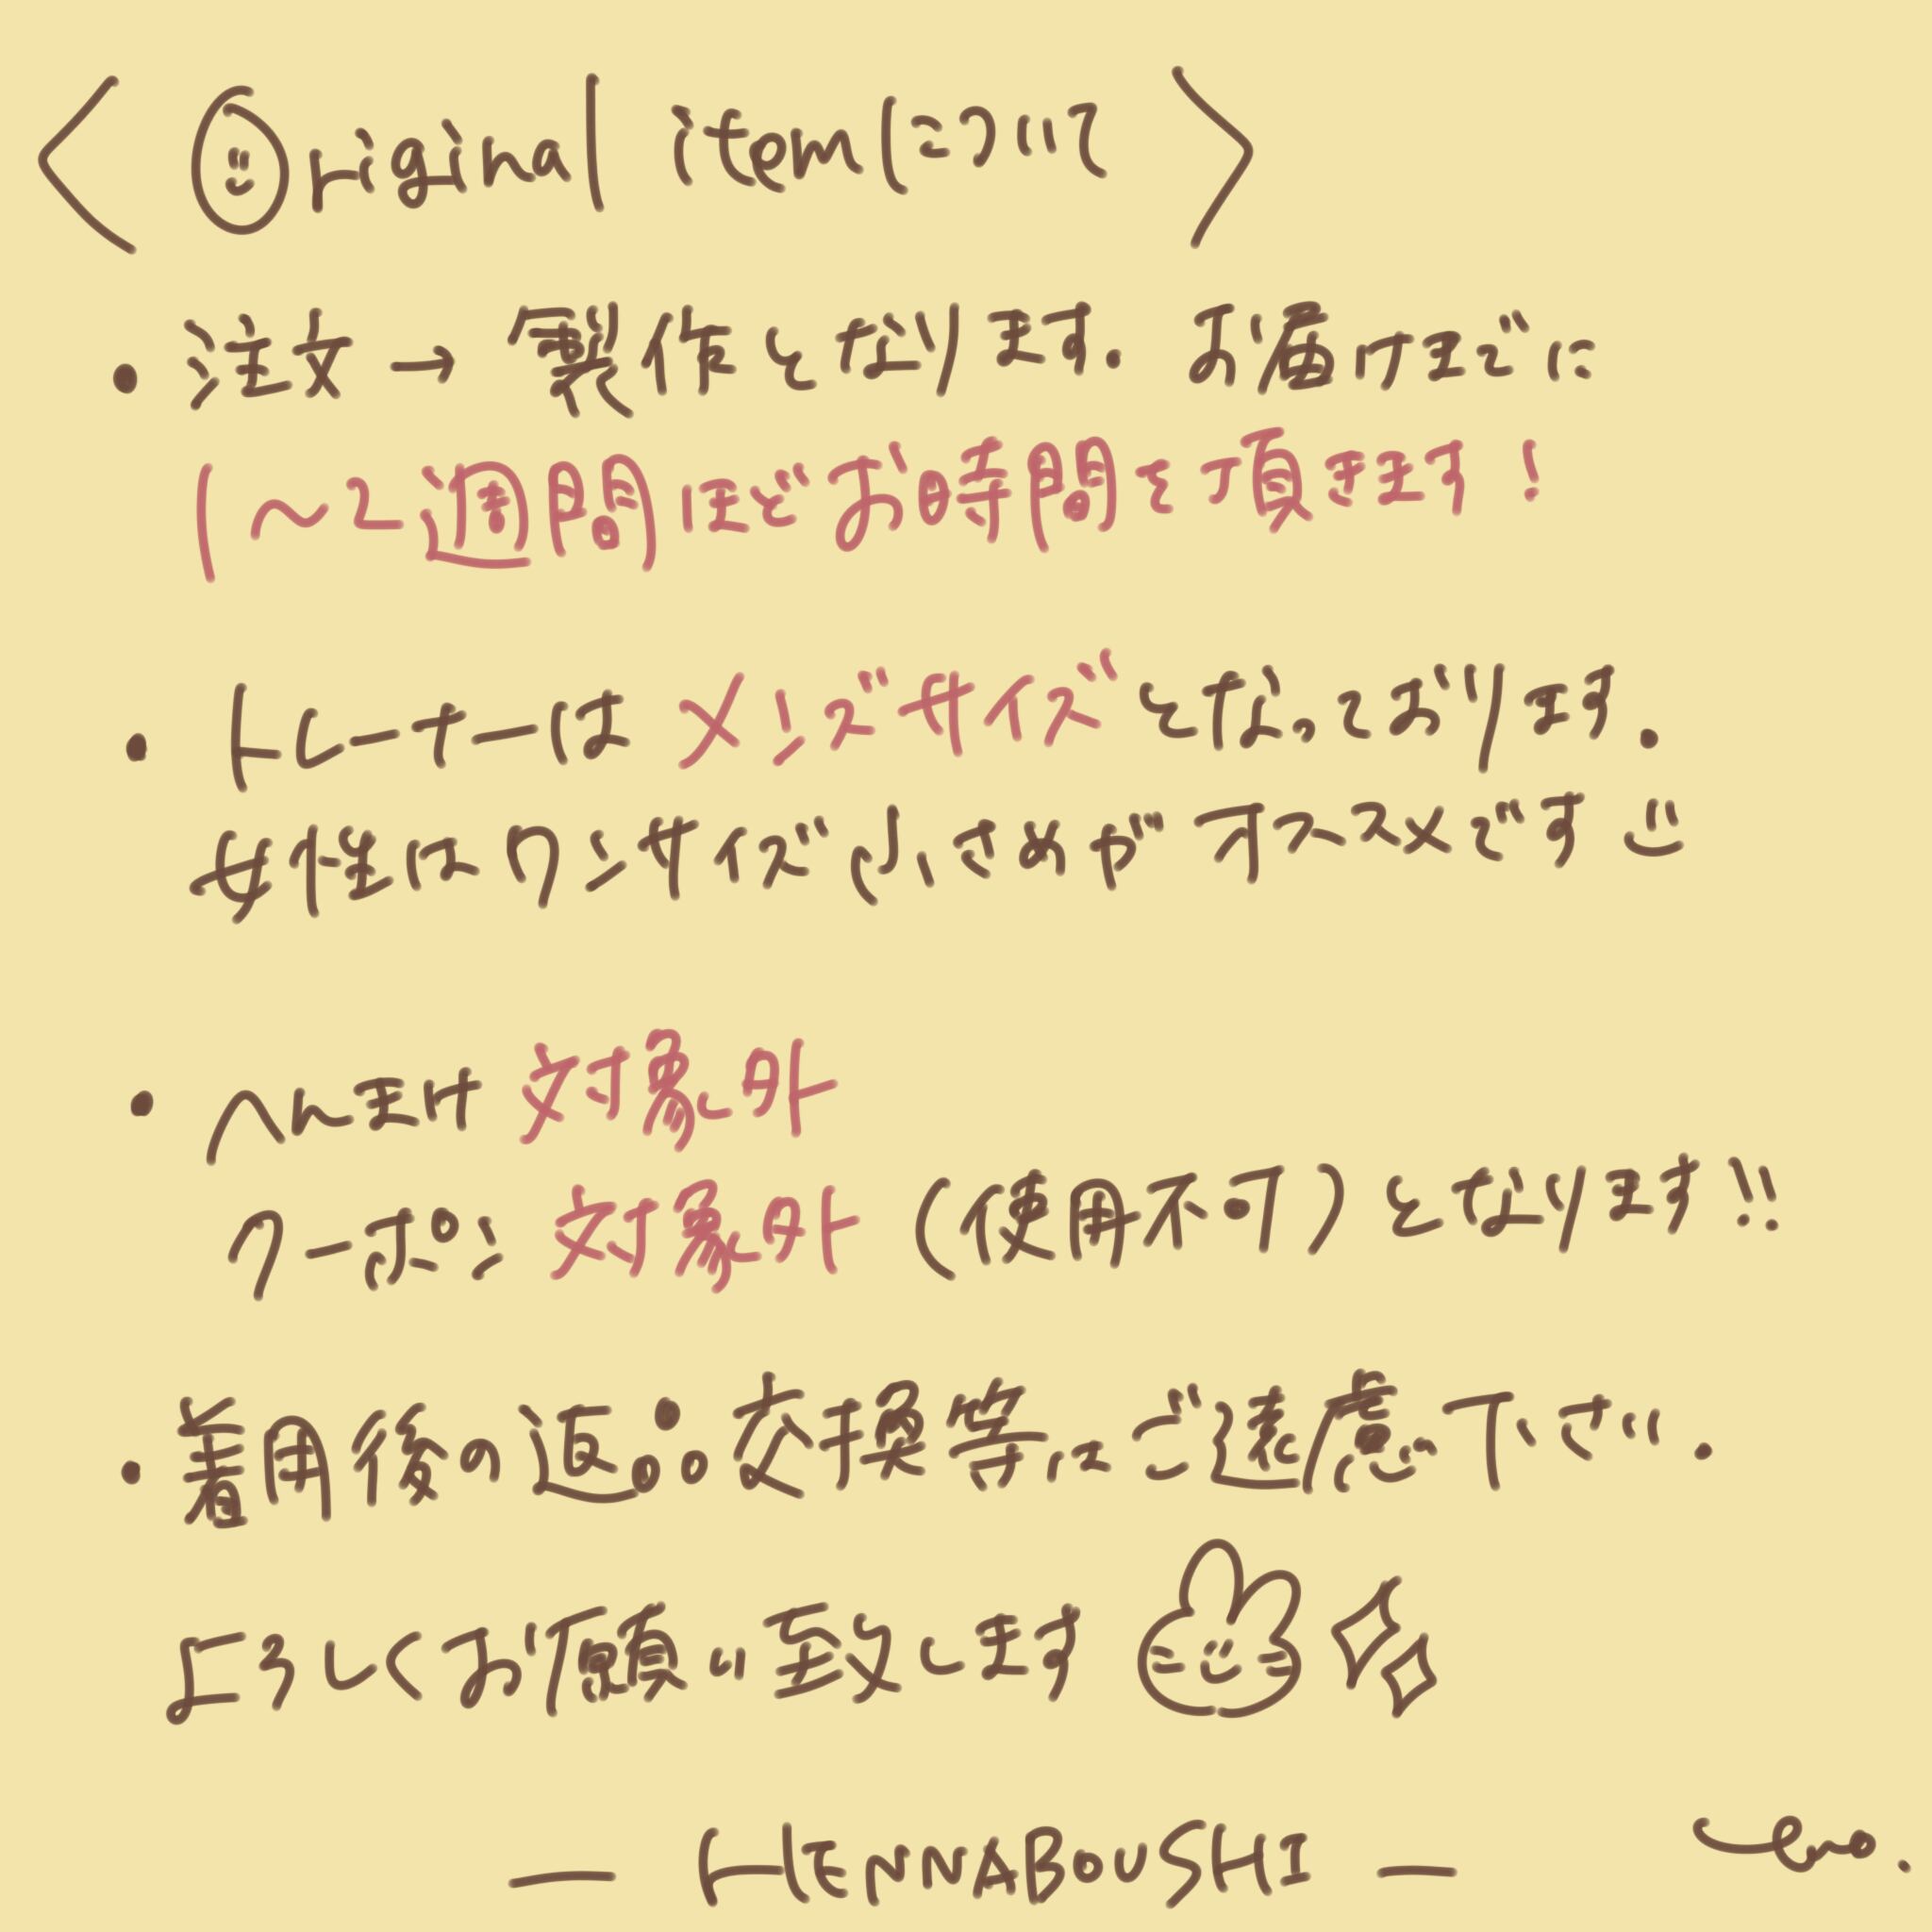 < Original itemについて >
・注文→製作となります. お届けまでに
1〜2週間ほどお時間を頂きます!
・トレーナーはメンズサイズとなっております.
女性はワンサイズ小さめがオススメです
・へんまけ対象外
クーポン対象外(使用不可)となります!!
・着用後の返品交換等はご遠慮下さい.
よろしくお願い致します
— HENNABOUSHI —